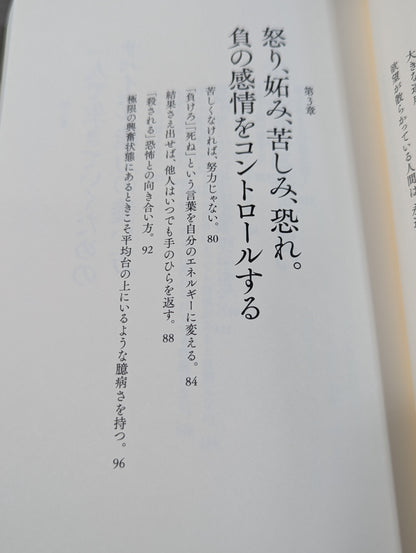 大きな
欲望が散らかっている人間は、
第3章
怒り、妬み、苦しみ、恐れ。
負の感情をコントロールする
苦しくなければ、努力じゃない。 80
「負けろ」「死ね」という言葉を自分のエネルギーに変える。 84
結果さえ出せば、他人はいつでも手のひらを返す。 88
「殺される」恐怖との向き合い方。 92
極限の興奮状態にあるときこそ平均台の上にいるような臆病さを持つ。 96